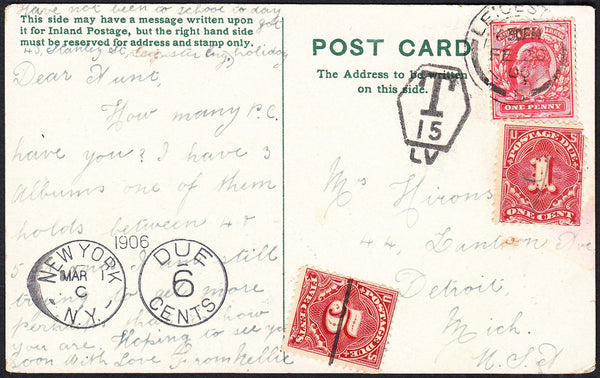 Have not been to school to day
This side may have a message written upon
it for Inland Postage, but the right hand side
must be reserved for address and stamp only.
got
holiday
Dear Aunt,
How many P.C.
have you? I have 3
Albums one of them
holds between 4 &
5
still
more
you are. Hoping to see yo
soon With Love from Nellie
NEW YORK
MAR 1
N.Y.
1906
DUE
6
CENTS
POST CARD
The Address to be written
on this side.
T
15
LV
LEICEST
FE
06
ONE PENNY
U S
POSTAGE DUE
1
ONE CENT
U S
POSTAGE DUE
5
FIVE CENTS
Mrs Hirons
44,
Detroit
Mich.
U.S.A